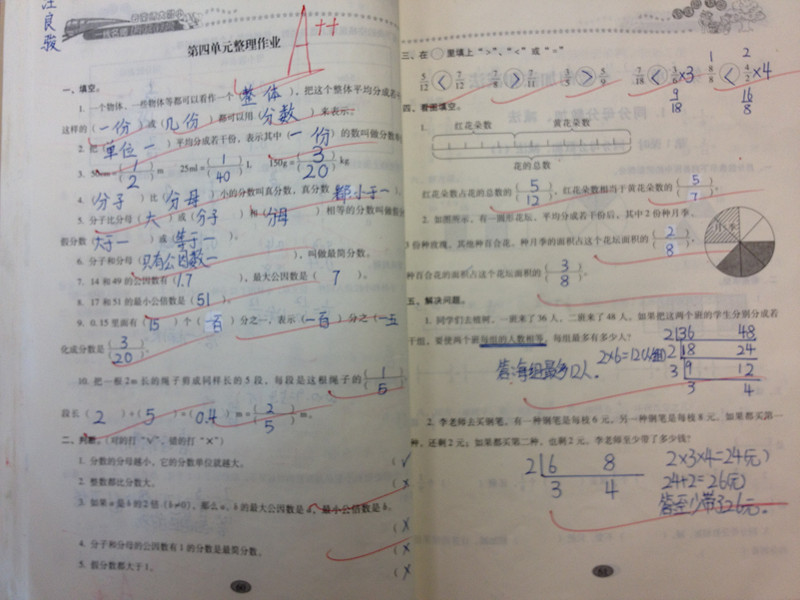 汪良骏
第四单元整理作业
A++
一、填空。
1. 一个物体、一些物体等都可以看作一个（整体），把这个整体平均分成若
这样的（一份）或（几份）都可以用（分数）来表示。
2. 把（单位一）平均分成若干份，表示其中（一份）的数叫做分数单
3. 50cm=(1/2)m 25ml=(1/40)L 150g=(3/20)kg
4.（分子）比（分母）小的分数叫真分数，真分数（都小于一）
5. 分子比分母（大）或（分子）和（分母）相等的分数叫做假
假分数（大于一）或（等于一）。
6. 分子和分母（只有公因数一），叫做最简分数。
7. 14和49的公因数有（1.7），最大公因数是（7）。
8. 17和51的最小公倍数是（51）
9. 0.15里面有（15）个（一百）分之一，表示（一百）分之（一五
化成分数是(3/20)。
10. 把一根2m长的绳子剪成同样长的5段，每段是这根绳子的(1/5)
段长（2）÷（5）=（0.4）m=(2/5)m。
二、判断。（对的打“√”，错的打“×”）
1. 分数的分母越小，它的分数单位就越大。（√
2. 整数都比分数大。（×
3. 如果a是b的2倍（b≠0），那么a、b的最大公因数是a，最小公倍数是b。
（×
4. 分子和分母的公因数有1的分数是最简分数。（×
5. 假分数都大于1。（×
60
三、在○里填上“>”、“<”或“=”
5/12 < 7/12 7/8 > 7/11 > 5/9 7/18 < ×3 1/8 < 2 4/2 ×4
9/18 16/8
四、看图填空。
1. 红花朵数 黄花朵数
花的总数
红花朵数占花的总数的(5/12)，红花朵数相当于黄花朵数的(5/7)
2. 如图所示，有一圆形花坛，平均分成若干份后，其中2份种月季，
3份种玫瑰，其他种百合花。种月季的面积占这个花坛面积的(2/8)
种百合花的面积占这个花坛面积的(3/8)
月季
五、解决问题。
1. 同学们去植树，一班来了36人，二班来了48人，如果把这两个班的学生分别分成若
干组，要使两个班每组的人数相等，每组最多有多少人？
2 36 48
2 18 24
3 9 12
3 4
2×6=12(人)
答：每组最多12人。
2. 李老师去买钢笔，有一种钢笔是每枝6元，另一种钢笔是每枝8元，如果都买第一
种，还剩2元；如果都买第二种，也剩2元，李老师至少带了多少钱？
2 6 8
3 4
2×3×4=24(元)
24+2=26(元)
答：至少带了26元。
61